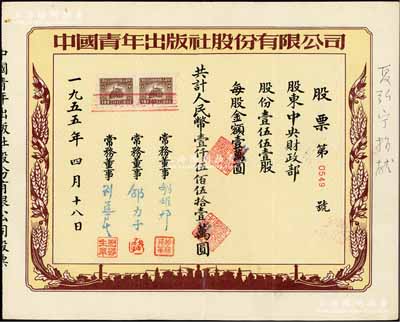 中國青年出版社股份有限公司
股票第0549號
股東中央財政部
股份壹伍伍壹股
每股金額壹萬圓
共計人民幣壹仟伍佰伍拾壹萬圓
常務董事
常務董事 邵力子
常務董事
一九五五年四月十八日
中國青年出版社股份有限公司股票